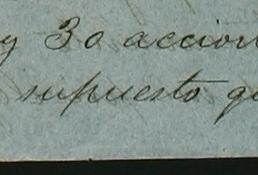 y 30 accion
supuesto qu